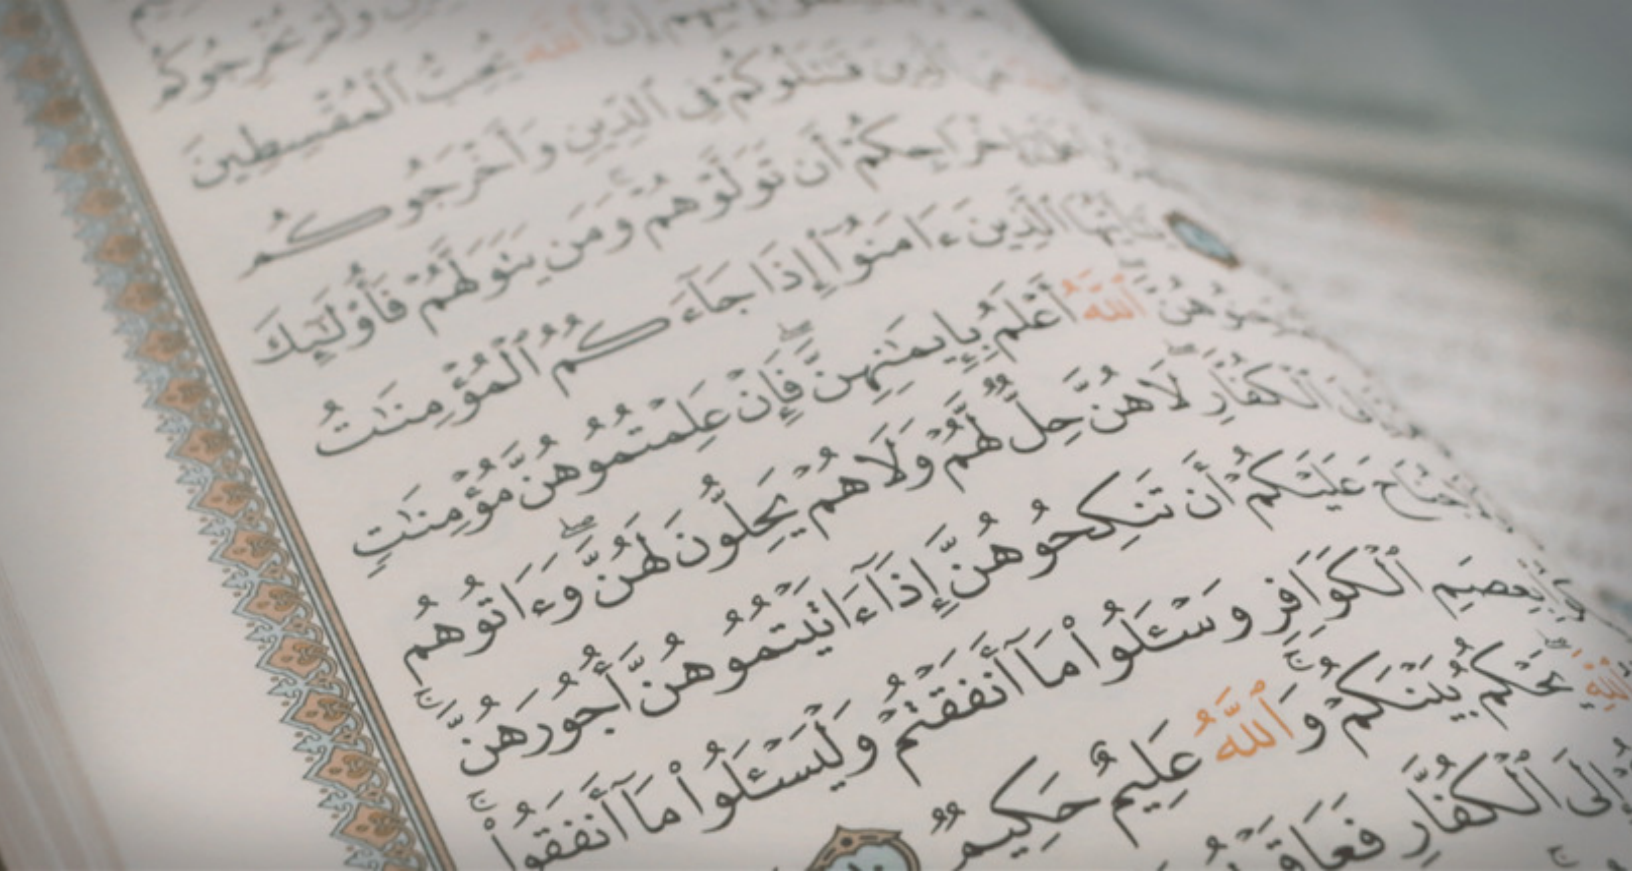 وَلَمْ يُخْرِجُوكُم
إِنَّ ٱللَّهَ يُحِبُّ ٱلْمُقْسِطِينَ
ٱلَّذِينَ قَـٰتَلُوكُمْ فِى ٱلدِّينِ وَأَخْرَجُوكُم
إِخْرَاجِكُمْ أَن تَوَلَّوْهُمْ ۚ وَمَن يَتَوَلَّهُمْ فَأُو۟لَـٰٓئِكَ
يَـٰٓأَيُّهَا ٱلَّذِينَ ءَامَنُوٓا۟ إِذَا جَآءَكُمُ ٱلْمُؤْمِنَـٰتُ
ٱللَّهُ أَعْلَمُ بِإِيمَـٰنِهِنَّ ۖ فَإِنْ عَلِمْتُمُوهُنَّ مُؤْمِنَـٰتٍ
ٱلْكُفَّارِ ۖ لَا هُنَّ حِلٌّ لَّهُمْ وَلَا هُمْ يَحِلُّونَ لَهُنَّ ۖ وَءَاتُوهُم
جُنَاحَ عَلَيْكُمْ أَن تَنكِحُوهُنَّ إِذَآ ءَاتَيْتُمُوهُنَّ أُجُورَهُنَّ ۚ
بِعِصَمِ ٱلْكَوَافِرِ وَسْـَٔلُوا۟ مَآ أَنفَقْتُمْ وَلْيَسْـَٔلُوا۟ مَآ أَنفَقُوا۟ ۚ
ٱللَّهِ ۖ يَحْكُمُ بَيْنَكُمْ ۚ وَٱللَّهُ عَلِيمٌ حَكِيمٌ
إِلَى ٱلْكُفَّارِ